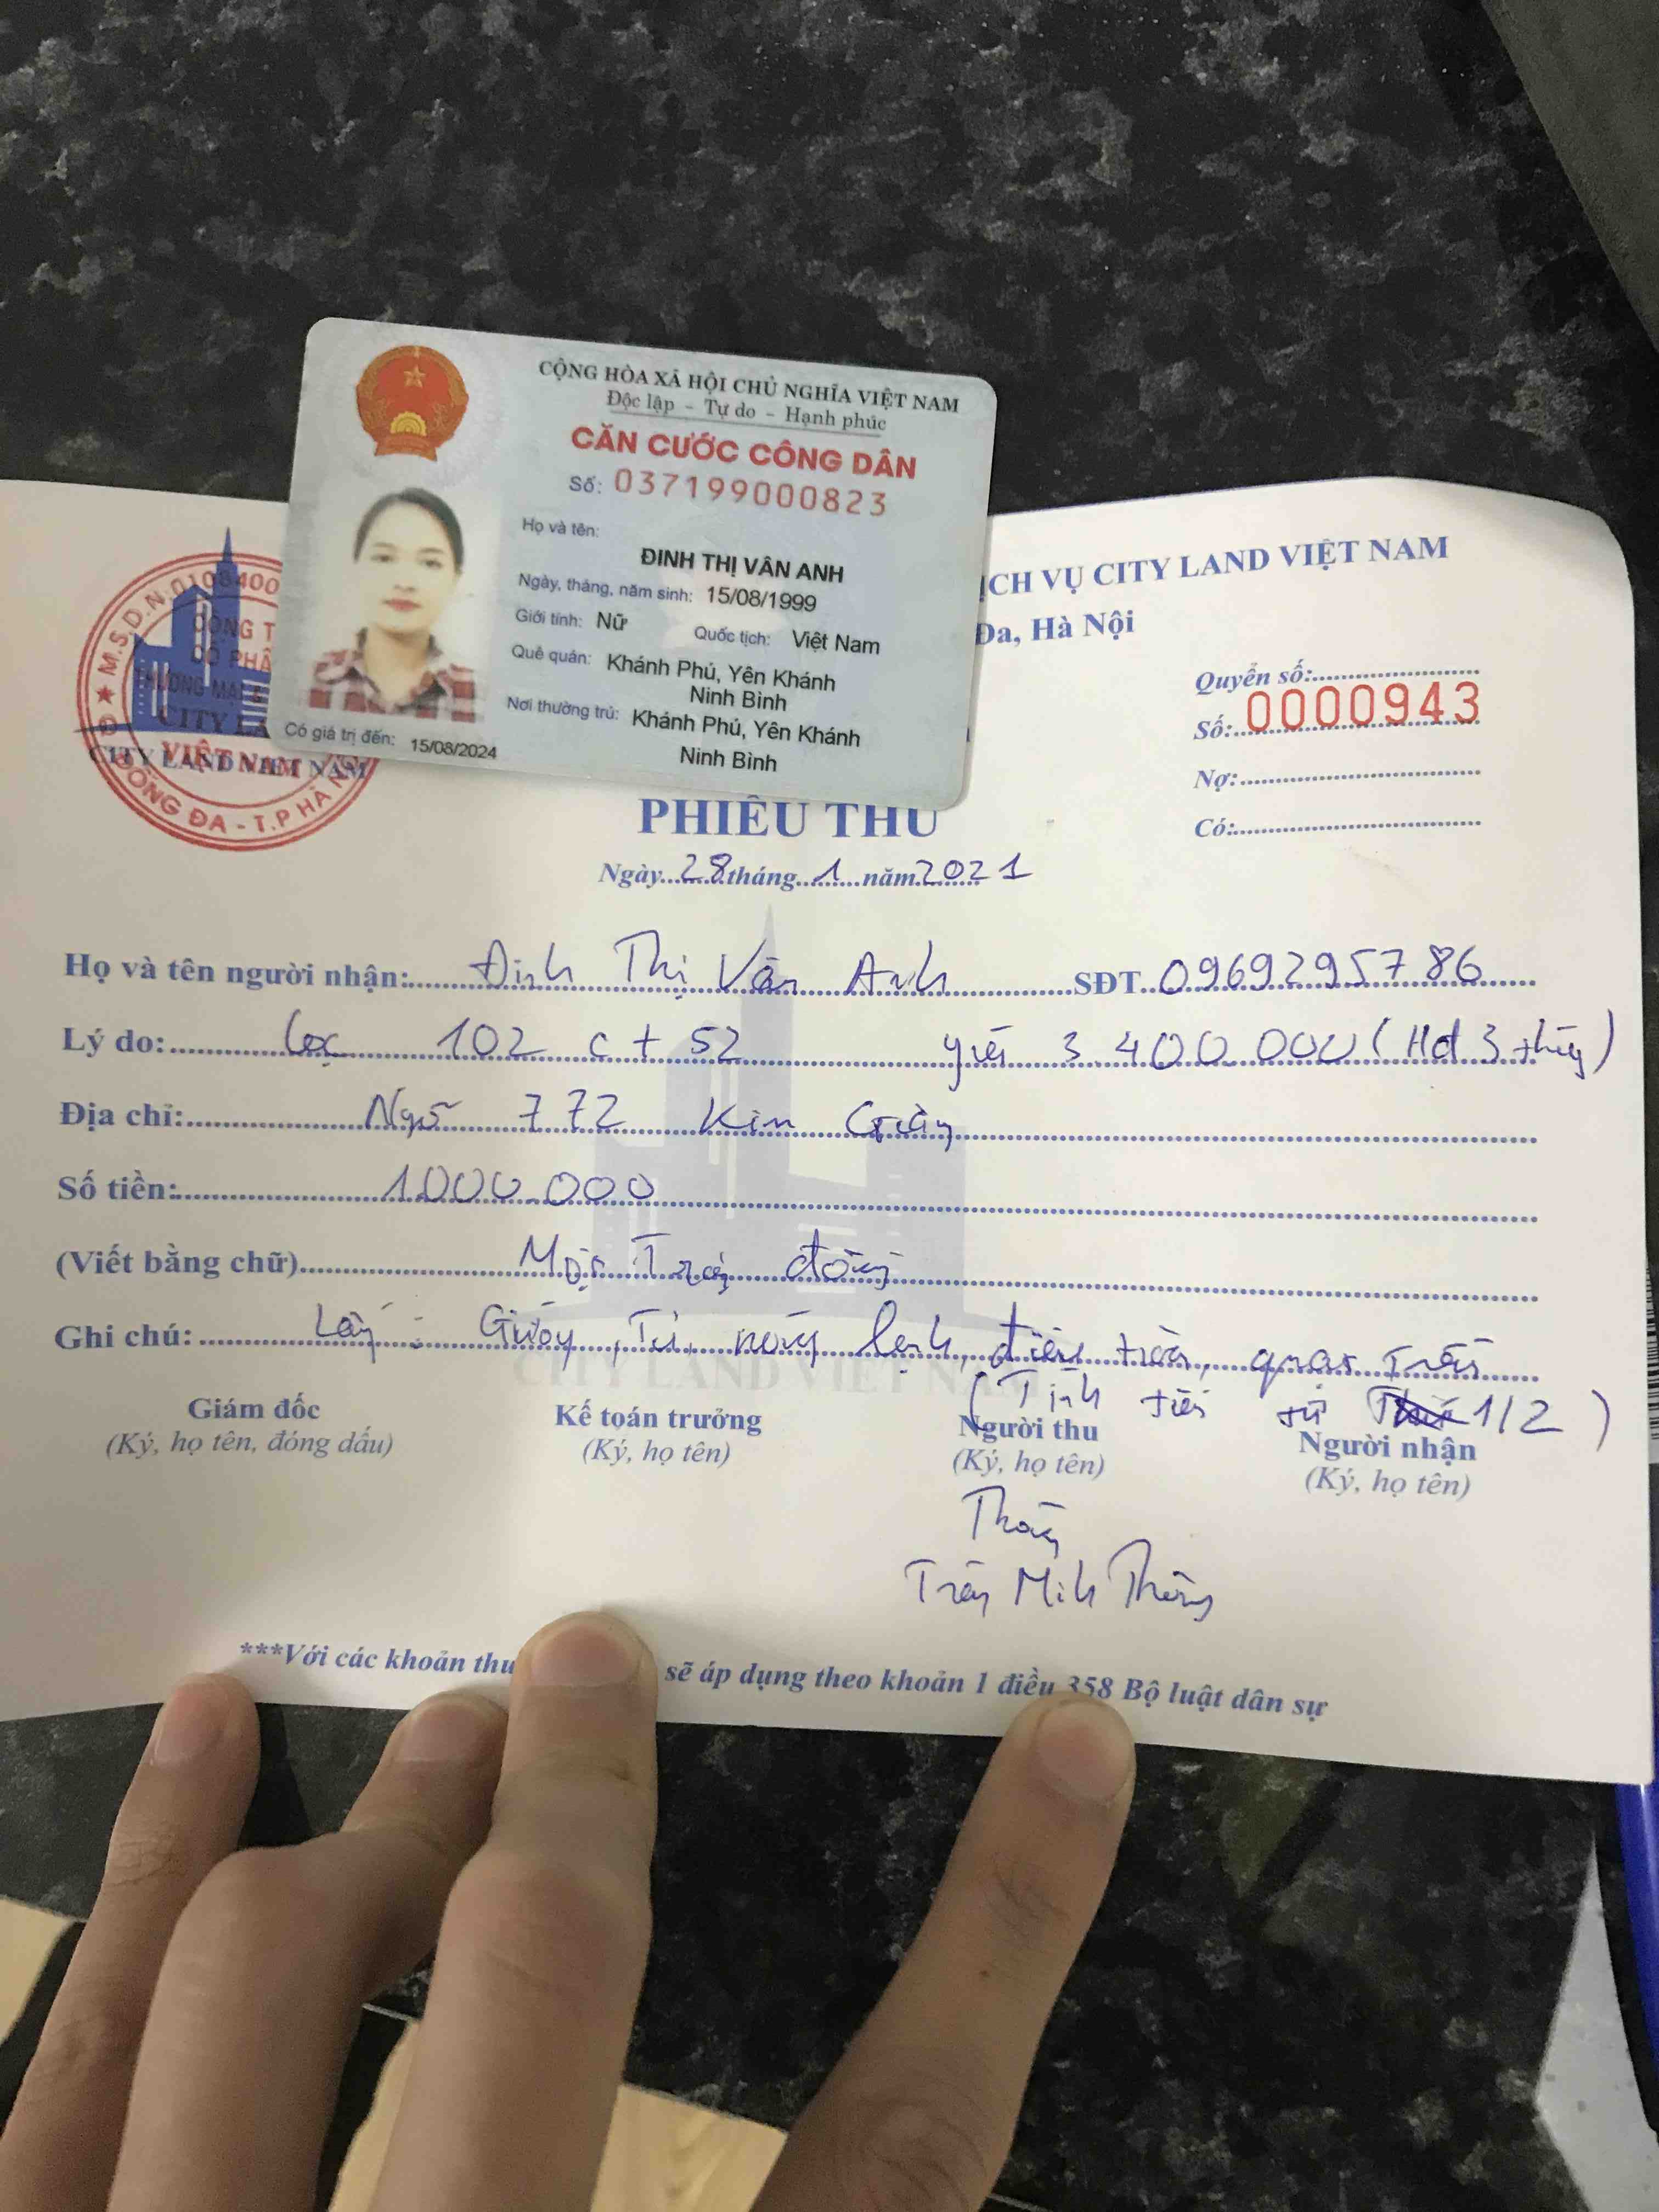 CỘNG HÒA XÃ HỘI CHỦ NGHĨA VIỆT NAM
Độc lập - Tự do - Hạnh phúc
CĂN CƯỚC CÔNG DÂN
Số: 037199000823
Họ và tên:
ĐINH THỊ VÂN ANH
Ngày, tháng, năm sinh: 15/08/1999
Giới tính: Nữ Quốc tịch: Việt Nam
Quê quán: Khánh Phú, Yên Khánh
Ninh Bình
Nơi thường trú: Khánh Phú, Yên Khánh
Ninh Bình
Có giá trị đến: 15/08/2024
ỊCH VỤ CITY LAND VIỆT NAM
Đa, Hà Nội
M.S.D.N
CITY LAND VIET NAM
VIỆT NAM
ĐỐNG ĐA - T.P HÀ
Quyển số:
Số: 0000943
Nợ:
Có:
PHIẾU THU
Ngày 28 tháng 1 năm 2021
Họ và tên người nhận: Đinh Thị Vân Anh SĐT 0969295786
Lý do: Cọc 102 c + 52 giá 3 400 000 (Hđ 3 tháng)
Địa chỉ: Ngõ 772 Kim Giang
Số tiền: 1.000.000
(Viết bằng chữ) Một Triệu đồng
Ghi chú: Lấy : Giường, Tủ, nóng lạnh, điều hòa, quạt trần
(Tính tiền từ 1/2)
CITY LAND VIET NAM
Giám đốc
(Ký, họ tên, đóng dấu)
Kế toán trưởng
(Ký, họ tên)
Người thu
(Ký, họ tên)
Người nhận
(Ký, họ tên)
Trần Minh
***Với các khoản thu sẽ áp dụng theo khoản 1 điều 358 Bộ luật dân sự